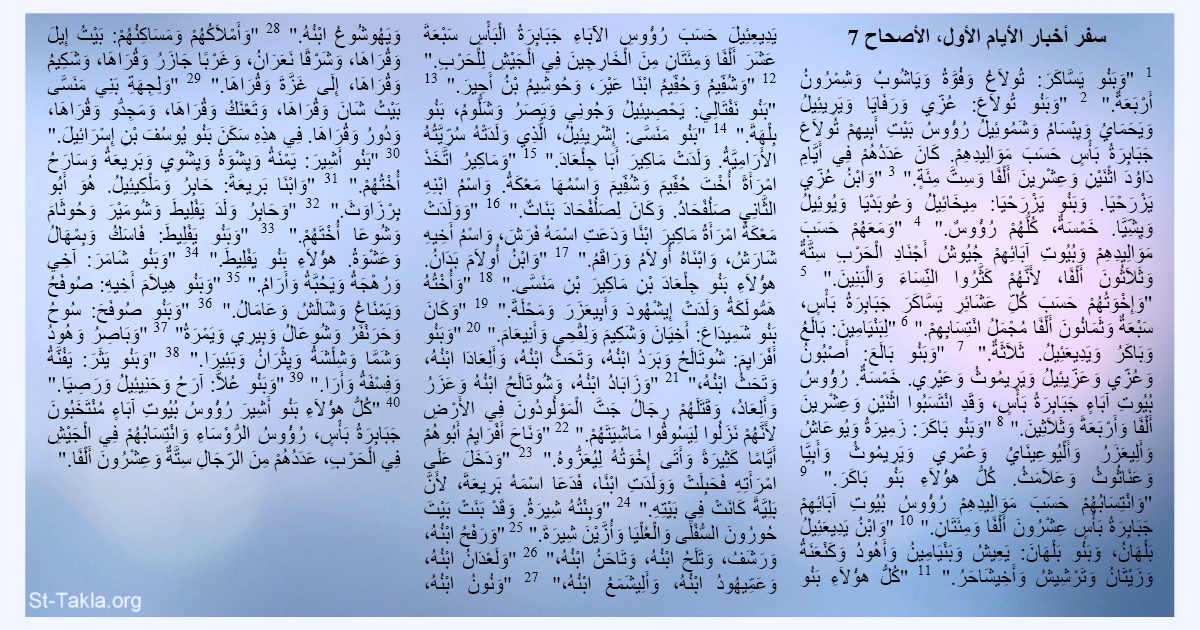 سفر أخبار الأيام الأول، الأصحاح 7
1 "وَبَنُو يَسَّاكَرَ: تُولاَعُ وَفُوَّةُ وَيَاشُوبُ وَشِمْرُونُ
أَرْبَعَةٌ." 2 "وَبَنُو تُولاَعَ: عُزِّي وَرَفَايَا وَيَرِيئِيلُ
وَيَحَمَايُ وَيِبْسَامُ وَشَمُوئِيلُ رُؤُوسُ بَيْتِ أَبِيهِمْ تُولاَعَ
جَبَابِرَةُ بَأْسٍ حَسَبَ مَوَالِيدِهِمْ. كَانَ عَدَدُهُمْ فِي أَيَّامِ
دَاوُدَ اثْنَيْنِ وَعِشْرِينَ أَلْفًا وَسِتَّ مِئَةٍ." 3 "وَابْنُ عُزِّي
يَزْرَحْيَا. وَبَنُو يَزْرَحْيَا: مِيخَائِيلُ وَعُوبَدْيَا وَيُوئِيلُ
وَيِشِّيَّا. خَمْسَةٌ، كُلُّهُمْ رُؤُوسٌ." 4 "وَمَعَهُمْ حَسَبَ
مَوَالِيدِهِمْ وَبُيُوتِ آبَائِهِمْ جُيُوشُ أَجْنَادِ الْحَرْبِ سِتَّةٌ
وَثَلاَثُونَ أَلْفًا، لأَنَّهُمْ كَثَّرُوا النِّسَاءَ وَالْبَنِينَ." 5
"وَإِخْوَتُهُمْ حَسَبَ كُلِّ عَشَائِرِ يَسَّاكَرَ جَبَابِرَةُ بَأْسٍ،
سَبْعَةٌ وَثَمَانُونَ أَلْفًا مُجْمَلُ انْتِسَابِهِمْ." 6 "لِبَنْيَامِينَ: بَالَعُ
وَبَاكَرُ وَيَدِيعَئِيلُ. ثَلاَثَةٌ." 7 "وَبَنُو بَالَعَ: أَصْبُونُ
وَعُزِّي وَعَزِّيئِيلُ وَيَرِيمُوثُ وَعَيْرِي. خَمْسَةٌ. رُؤُوسُ
بُيُوتِ آبَاءٍ جَبَابِرَةُ بَأْسٍ، وَقَدِ انْتَسَبُوا اثْنَيْنِ وَعِشْرِينَ
أَلْفًا وَأَرْبَعَةً وَثَلاَثِينَ." 8 "وَبَنُو بَاكَرَ: زَمِيرَةُ وَيُوعَاشُ
وَأَلِيعَزَرُ وَأَلْيُوعِينَايُ وَعُمْرِي وَيَرِيمُوثُ وَأَبِيَّا
وَعَنَاثُوثُ وَعَلاَمَثُ. كُلُّ هؤُلاَءِ بَنُو بَاكَرَ." 9
"وَانْتِسَابُهُمْ حَسَبَ مَوَالِيدِهِمْ رُؤُوسُ بُيُوتِ آبَائِهِمْ
جَبَابِرَةُ بَأْسٍ عِشْرُونَ أَلْفًا وَمِئَتَانِ." 10 "وَابْنُ يَدِيعَئِيلُ
بَلْهَانُ، وَبَنُو بَلْهَانَ: يَعِيشُ وَبَنْيَامِينُ وَأَهُودُ وَكَنْعَنَةُ
وَزَيْتَانُ وَتَرْشِيشُ وَأَخِيشَاحَرُ." 11 "كُلُّ هؤُلاَءِ بَنُو
يَدِيعِئِيلَ حَسَبَ رُؤُوسِ الآبَاءِ جَبَابِرَةُ الْبَأْسِ سَبْعَةَ
عَشَرَ أَلْفًا وَمِئَتَانِ مِنَ الْخَارِجِينَ فِي الْجَيْشِ لِلْحَرْبِ."
12 "وَشُفِّيمُ وَحُفِّيمُ ابْنَا عَيْرَ، وَحُوشِيمُ بْنُ أَحِيرَ." 13
"بَنُو نَفْتَالِي: يَحْصِيئِيلُ وَجُونِي وَيَصَرُ وَشَلُّومُ، بَنُو
بِلْهَةَ." 14 "بَنُو مَنَسَّى: إِشْرِيئِيلُ، الَّذِي وَلَدَتْهُ سُرِّيَّتُهُ
الأَرَامِيَّةُ. وَلَدَتْ مَاكِيرَ أَبَا جِلْعَادَ." 15 "وَمَاكِيرُ اتَّخَذَ
امْرَأَةً أُخْتَ حُفِّيمَ وَشُفِّيمَ وَاسْمُهَا مَعْكَةُ. وَاسْمُ ابْنِهِ
الثَّانِي صَلُفْحَادُ. وَكَانَ لِصَلُفْحَادَ بَنَاتٌ." 16 "وَوَلَدَتْ
مَعْكَةُ امْرَأَةُ مَاكِيرَ ابْنًا وَدَعَتِ اسْمَهُ فَرَشَ، وَاسْمُ أَخِيهِ
شَارَشُ، وَابْنَاهُ أُولاَمُ وَرَاقَمُ." 17 "وَابْنُ أُولاَمَ بَدَانُ.
هؤُلاَءِ بَنُو جِلْعَادَ بْنِ مَاكِيرَ بْنِ مَنَسَّى." 18 "وَأُخْتُهُ
هَمُّولَكَةُ وَلَدَتْ إِيشْهُودَ وَأَبِيعَزَرَ وَمَحْلَةَ." 19 "وَكَانَ
بَنُو شَمِيدَاعَ: أَخِيَانَ وَشَكِيمَ وَلِقْحِي وَأَنِيعَامَ." 20 "وَبَنُو
أَفْرَايِمَ: شُوتَالَحُ وَبَرَدُ ابْنُهُ، وَتَحَثُ ابْنُهُ، وَأَلِعَادَا ابْنُهُ،
وَتَحَثُ ابْنُهُ،" 21 "وَزَابَادُ ابْنُهُ، وَشُوتَالَحُ ابْنُهُ وَعَزَرُ
وَأَلِعَادُ، وَقَتَلَهُمْ رِجَالُ جَتَّ الْمَوْلُودُونَ فِي الأَرْضِ
لأَنَّهُمْ نَزَلُوا لِيَسُوقُوا مَاشِيَتَهُمْ." 22 "وَنَاحَ أَفْرَايِمُ أَبُوهُمْ
أَيَّامًا كَثِيرَةً وَأَتَى إِخْوَتُهُ لِيُعَزُّوهُ." 23 "وَدَخَلَ عَلَى
امْرَأَتِهِ فَحَبِلَتْ وَوَلَدَتِ ابْنًا، فَدَعَا اسْمَهُ بَرِيعَةَ، لأَنَّ
بَلِيَّةً كَانَتْ فِي بَيْتِهِ." 24 "وَبِنْتُهُ شِيرَةُ. وَقَدْ بَنَتْ بَيْتَ
حُورُونَ السُّفْلَى وَالْعُلْيَا وَأُزَّيْنَ شِيرَةَ." 25 "وَرَفَحُ ابْنُهُ،
وَرَشَفُ، وَتَلَحُ ابْنُهُ، وَتَاحَنُ ابْنُهُ،" 26 "وَلَعْدَانُ ابْنُهُ،
وَعَمِّيهُودُ ابْنُهُ، وَأَلِيشَمَعُ ابْنُهُ،" 27 "وَنُونُ ابْنُهُ،
وَيَهُوشُوعُ ابْنُهُ." 28 "وَأَمْلاَكُهُمْ وَمَسَاكِنُهُمْ: بَيْتُ إِيلَ
وَقُرَاهَا، وَشَرْقًا نَعَرَانُ، وَغَرْبًا جَازَرُ وَقُرَاهَا، وَشَكِيمُ
وَقُرَاهَا، إِلَى غَزَّةَ وَقُرَاهَا." 29 "وَلِجِهَةِ بَنِي مَنَسَّى
بَيْتُ شَانَ وَقُرَاهَا، وَتَعْنَكُ وَقُرَاهَا، وَمَجِدُّو وَقُرَاهَا،
وَدُورُ وَقُرَاهَا. فِي هذِهِ سَكَنَ بَنُو يُوسُفَ بْنِ إِسْرَائِيلَ."
30 "بَنُو أَشِيرَ: يَمْنَةُ وَيِشْوَةُ وَيِشْوِي وَبَرِيعَةُ وَسَارَحُ
أُخْتُهُمْ." 31 "وَابْنَا بَرِيعَةَ: حَابِرُ وَمَلْكِيئِيلُ. هُوَ أَبُو
بِرْزَاوَثَ." 32 "وَحَابِرُ وَلَدَ يَفْلِيطَ وَشُومَيْرَ وَحُوثَامَ
وَشُوعَا أُخْتَهُمْ." 33 "وَبَنُو يَفْلِيطَ: فَاسَكُ وَبِمْهَالُ
وَعَشْوَةُ. هؤُلاَءِ بَنُو يَفْلِيطَ." 34 "وَبَنُو شَامَرَ: آخِي
وَرُهْجَةُ وَيَحُبَّةُ وَأَرَامُ." 35 "وَبَنُو هِيلاَمَ أَخِيهِ: صُوفَحُ
وَيَمْنَاعُ وَشَالَشُ وَعَامَالُ." 36 "وَبَنُو صُوفَحَ: سُوحُ
وَحَرَنْفَرُ وَشُوعَالُ وَبِيرِي وَيَمْرَةُ" 37 "وَبَاصِرُ وَهُودُ
وَشَمَّا وَشِلْشَةُ وَيِثْرَانُ وَبَئِيرَا." 38 "وَبَنُو يَثَرَ: يَفُنَّةُ
وَفِسْفَةُ وَأَرَا." 39 "وَبَنُو عُلاَّ: آرَحُ وَحَنِيئِيلُ وَرَصِيَا."
40 "كُلُّ هؤُلاَءِ بَنُو أَشِيرَ رُؤُوسُ بُيُوتِ آبَاءٍ مُنْتَخَبُونَ
جَبَابِرَةُ بَأْسٍ، رُؤُوسُ الرُّؤَسَاءِ وَانْتِسَابُهُمْ فِي الْجَيْشِ
فِي الْحَرْبِ، عَدَدُهُمْ مِنَ الرِّجَالِ سِتَّةٌ وَعِشْرُونَ أَلْفًا."
St-Takla.org